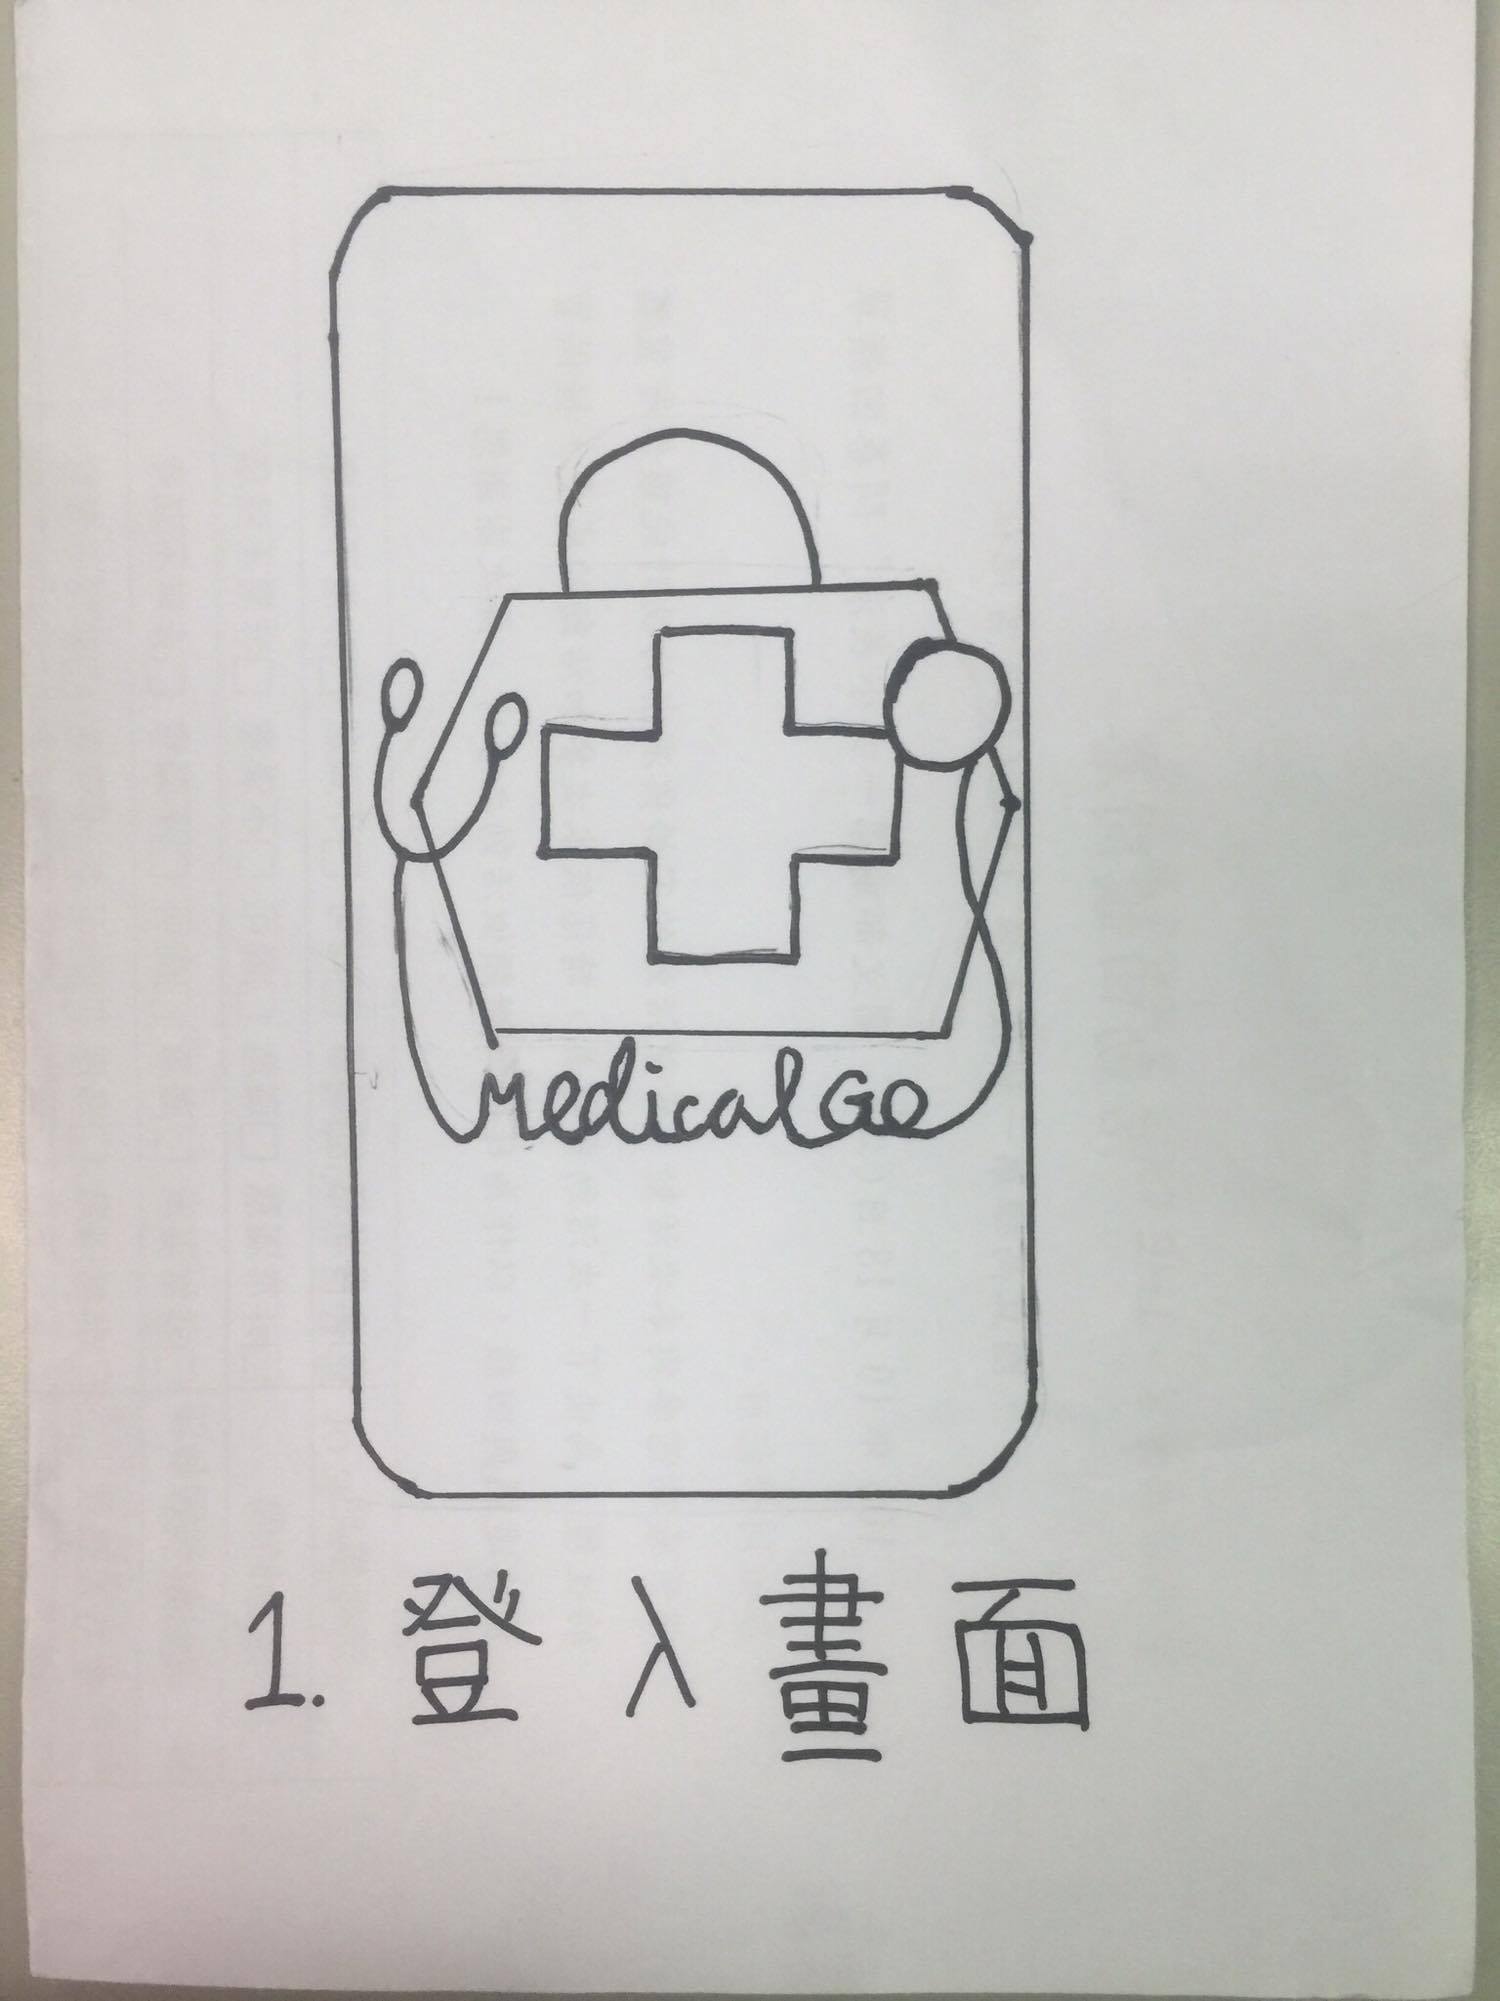 MedicalGo
1. 登入畫面